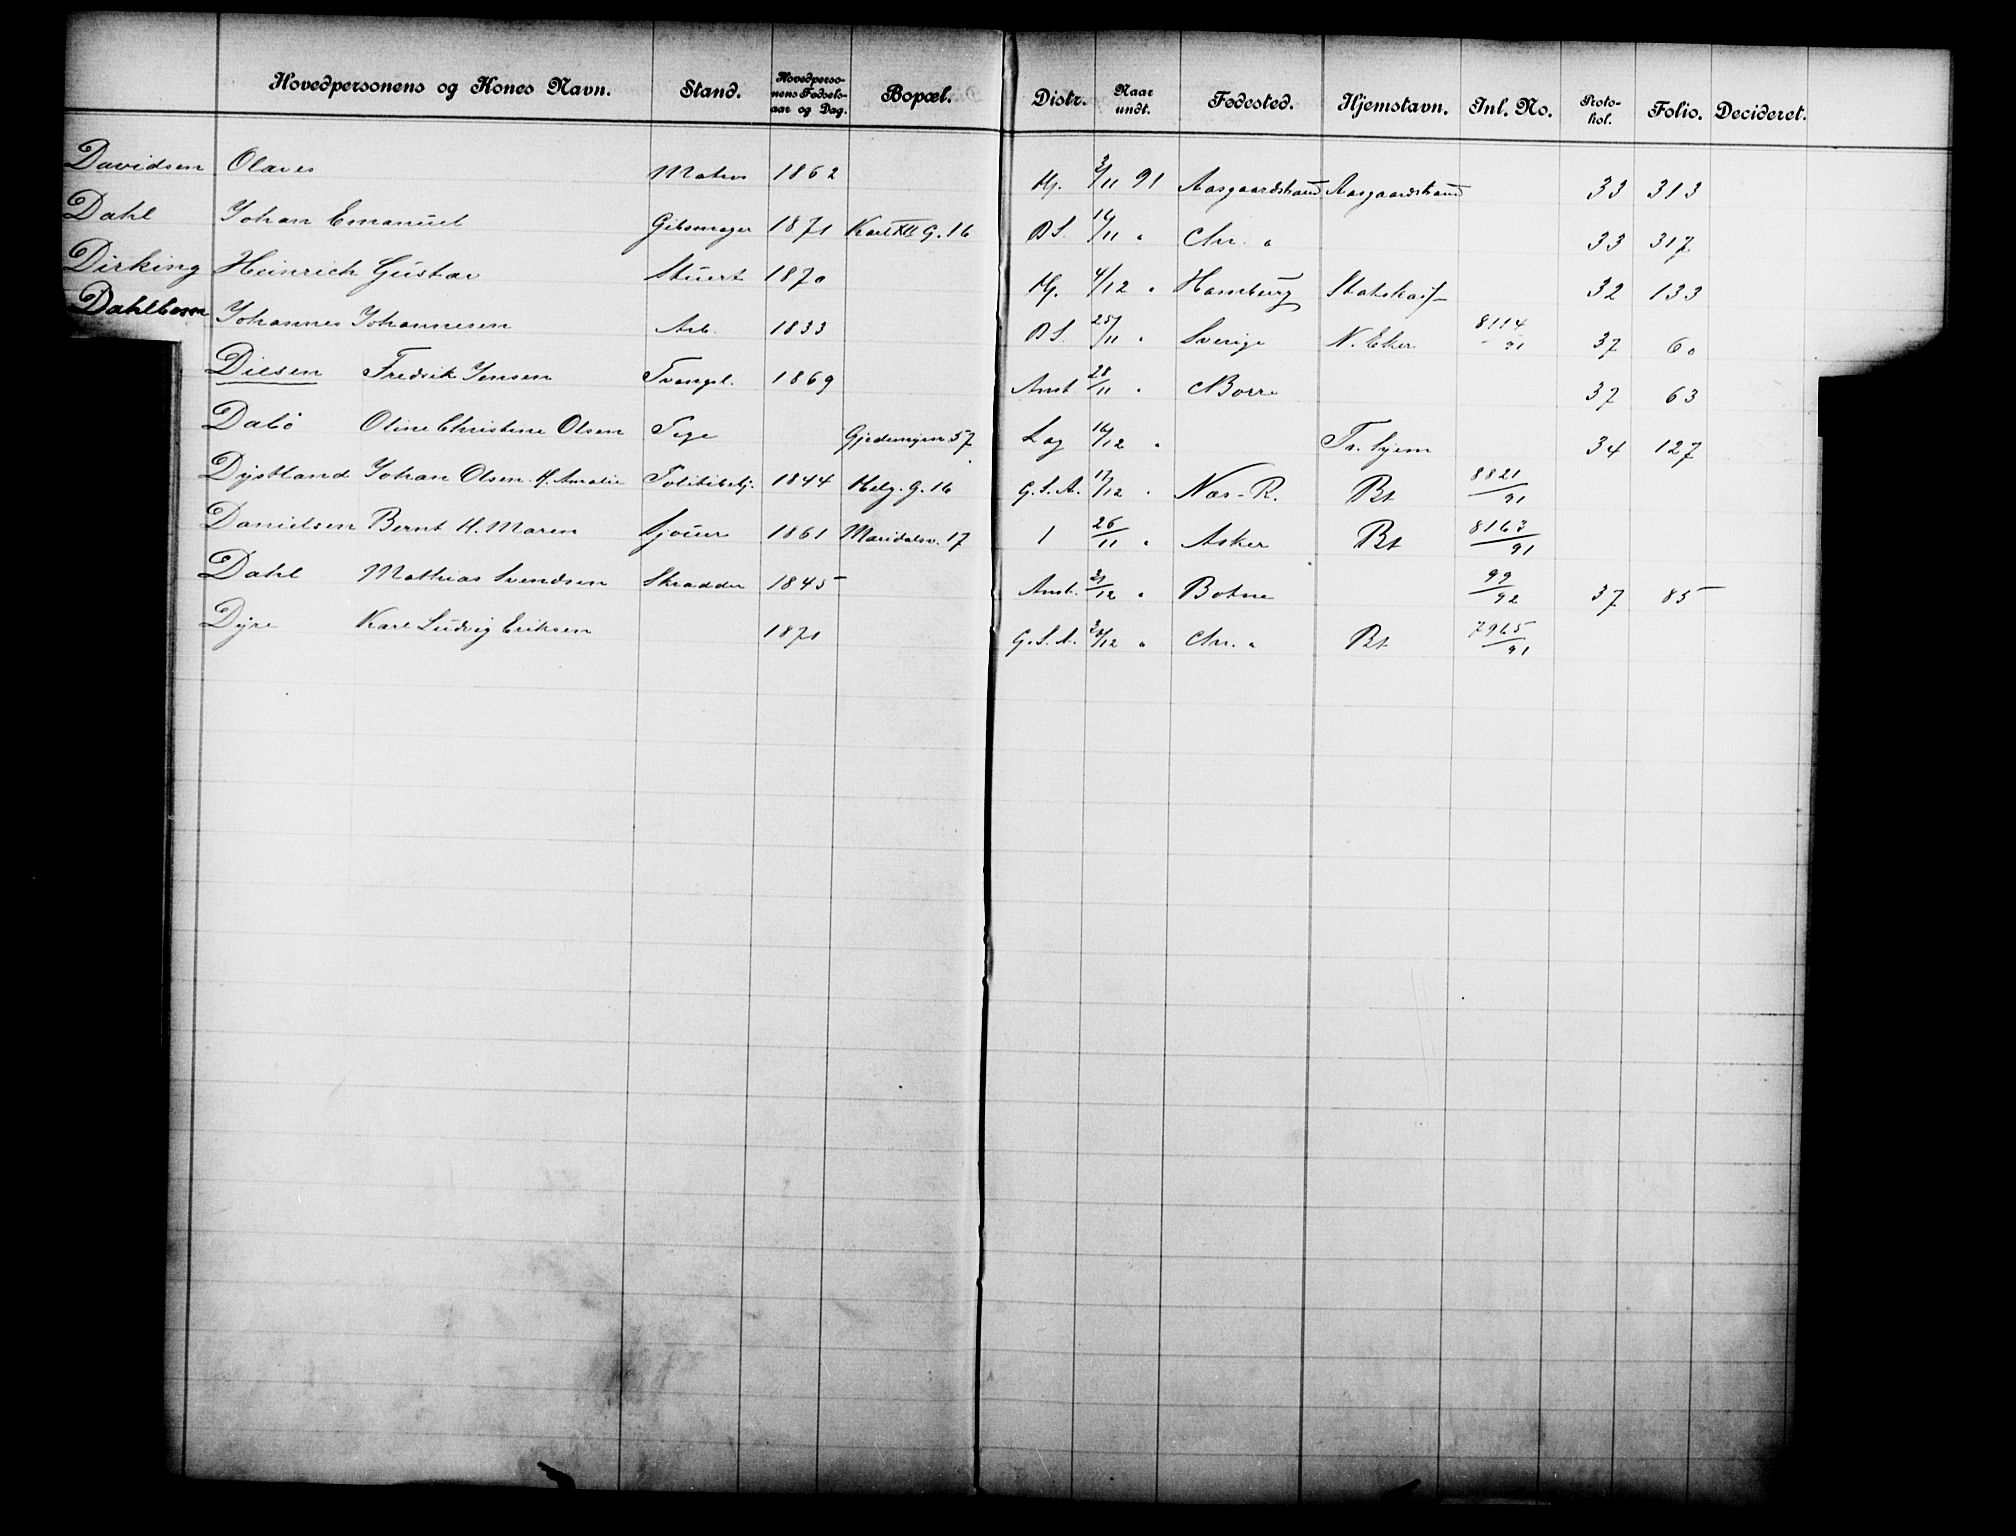 Hovedpersonens og Kones Navn. Stand. Hovedpersonens Fødselsaar og Dag. Bopæl. Distr. Naar undt. Fødested. Hjemstavn. Inl. No. Protokol. Folio. Decideret.
Davidsen Olaves Matros 1862 3/11 91 Aasgaardstrand Aasgaardstrand 33 313
Dahl Johan Emanuel Gibsmager 1871 Karl XII G. 16 D S. 16/11 " Chr. " 33 317
Dirking Heinrich Gustav Stuert 1870 4/12 " Hamburg 32 133
Dahlbom Johannes Johannesen Arb. 1833 D S. 25/11 " Sverige N. Eker 8114/91 37 60
Diesen Fredrik Jensen Tvangsl. 1869 Amt 28/11 " Borre 37 63
Dabo Oline Christine Olsen Pige 57 Lag 16/12 " Tr. hjem 34 127
Dystland Johan Olsen H. Amalie Politibetj. 1844 Helg. G. 16 G. S. A. 17/12 " Næs - R. Bt 8821/91
Danielsen Bernt H. Maren 1861 Maridalsv. 17 1 26/11 " Asker Bt 8163/91
Dahl Mathias Svendsen Skrædder 1845 Amt. 21/12 " Botne 99/92 37 85
Dyre Karl Ludvig Eriksen 1871 G. S. A. /12 " Chr. " Bt 7965/91